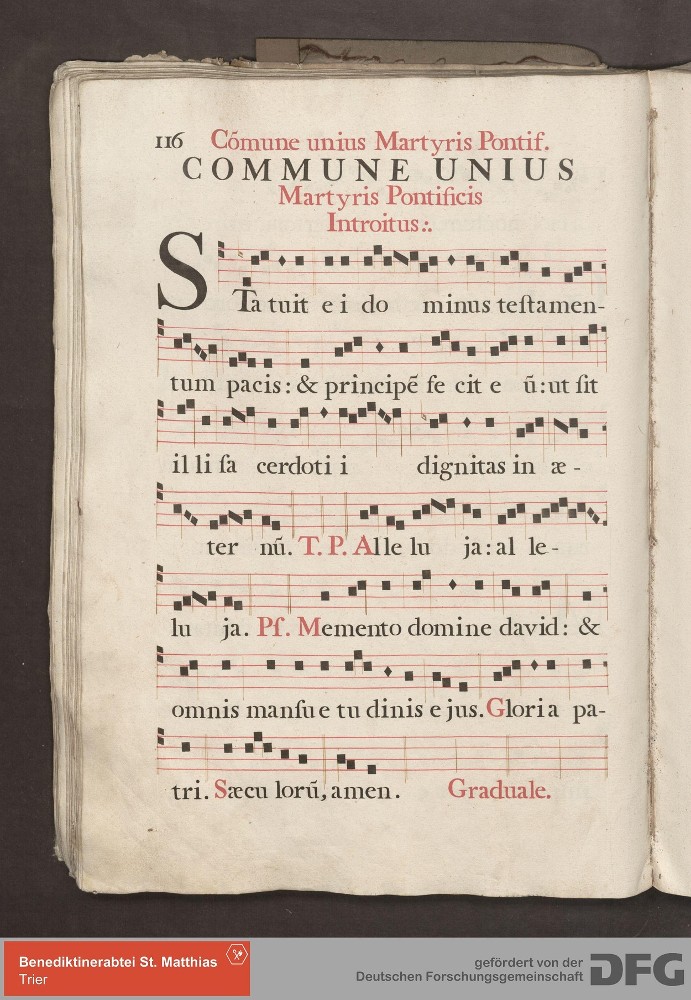 116 Cõmune unius Martyris Pontif.
COMMUNE UNIUS
Martyris Pontificis
Introitus:.
STa tuit e i do minus teſtamen-
tum pacis: & principẽ fe cit e ũ:ut ſit
il li ſa cerdoti i dignitas in æ-
ter nũ. T. P. Alle lu ja: al le-
lu ja. Pſ. Memento domine david: &
omnis manſue tu dinis e jus. Gloria pa-
tri. Sæcu lorũ, amen. Graduale.
Benediktinerabtei St. Matthias
Trier
gefördert von der
Deutschen Forschungsgemeinschaft DFG